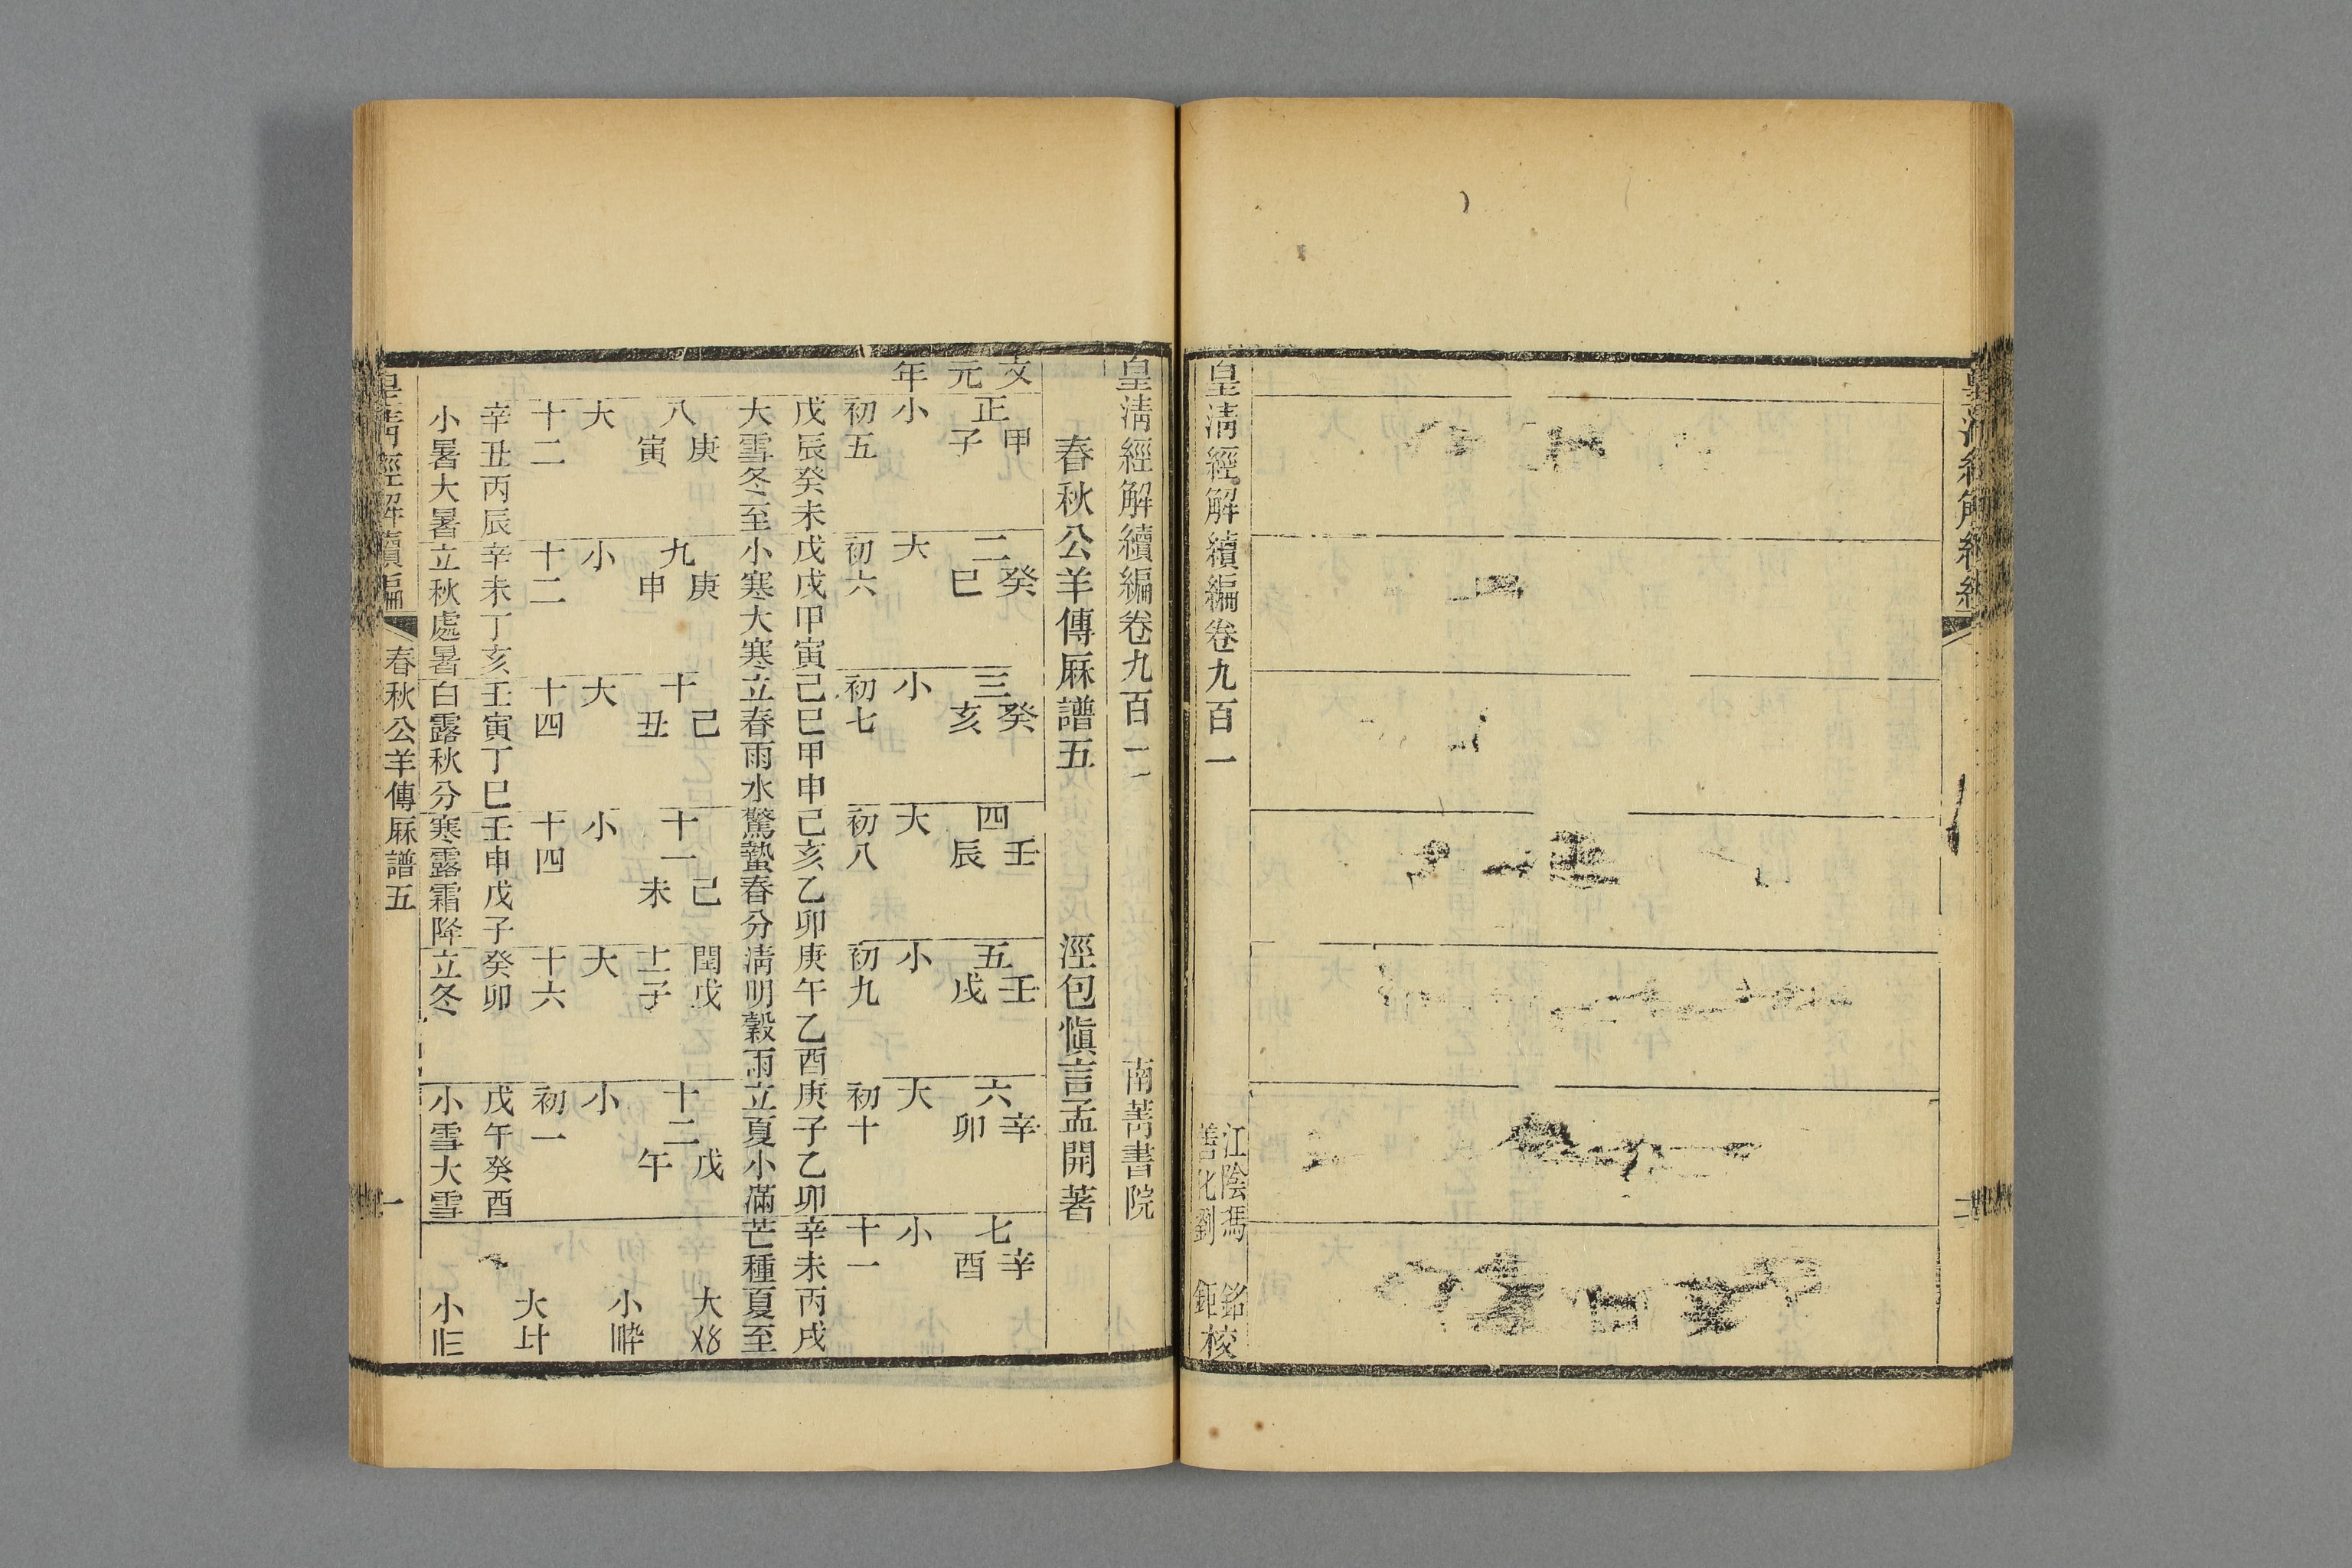 皇淸經解續編卷九百一
江陰馮銘
善化劉鉅校
皇淸經解續編卷九百一 南菁書院
春秋公羊傳厤譜五 涇包愼言孟開著
文元年
正 甲子 小 初五
戊辰癸未
大雪冬至
二 癸巳 大 初六
戊戌甲寅
小寒大寒
三 癸亥 小 初七
己巳甲申
立春雨水
四 壬辰 大 初八
己亥乙卯
驚蟄春分
五 壬戌 小 初九
庚午乙酉
淸明穀雨
六 辛卯 大 初十
庚子乙卯
立夏小滿
七 辛酉 小 十一
辛未丙戌
芒種夏至
八 庚寅 大 十二
辛丑丙辰
小暑大暑
九 庚申 小 十二
辛未丁亥
立秋處暑
十 己丑 大 十四
壬寅丁巳
白露秋分
十一 己未 小 十四
壬申戊子
寒露霜降
閏十二 戊子 大 十六
癸卯
立冬
十二 戊午 小 初一
戊午癸酉
小雪大雪
皇淸經解續編 春秋公羊傳厤譜五 一